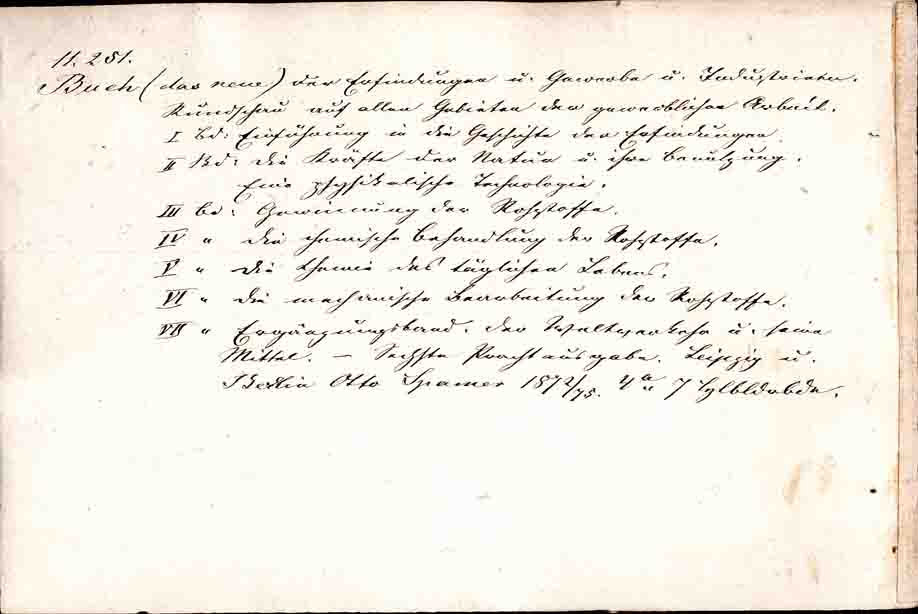 11.251.
Buch (das neue) der Erfindungen u. Gewerbe u. Industrieen.
Rundschau auf allen Gebieten der gewerblichen Arbeit.
I Bd: Einführung in die Geschichte der Erfindungen
II Bd: die Kräfte der Natur u. ihre Benutzung.
Eine physikalische Technologie.
III Bd: Gewinnung der Rohstoffe.
IV " die chemische Behandlung der Rohstoffe.
V " die Chemie des täglichen Lebens.
VI " die mechanische Bearbeitung der Rohstoffe.
VII " Ergänzungsband. der Weltverkehr u. seine
Mittel. — Sechste Prachtausgabe. Leipzig u.
Berlin Otto Spamer 1872/75. 4° 7